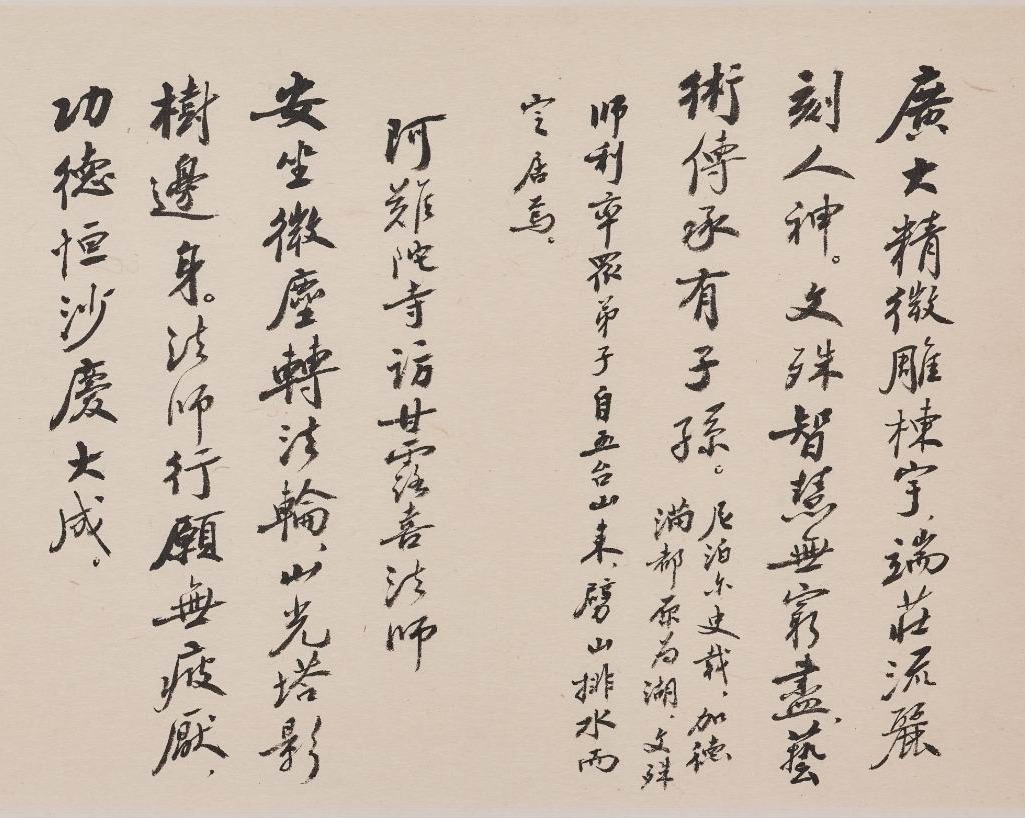 廣大精微雕棟宇、端莊流麗
刻人神。文殊智慧無窮盡、藝
術傳承有子孫。
尼泊尔史载、加德
满都原为湖、文殊
师利率眾弟子自五台山来、劈山排水而
定居焉。
阿難陀寺访甘露喜法师
安坐微塵轉法輪、山光塔影
樹邊身。法师行願無疲厭、
功德恒沙慶大成。